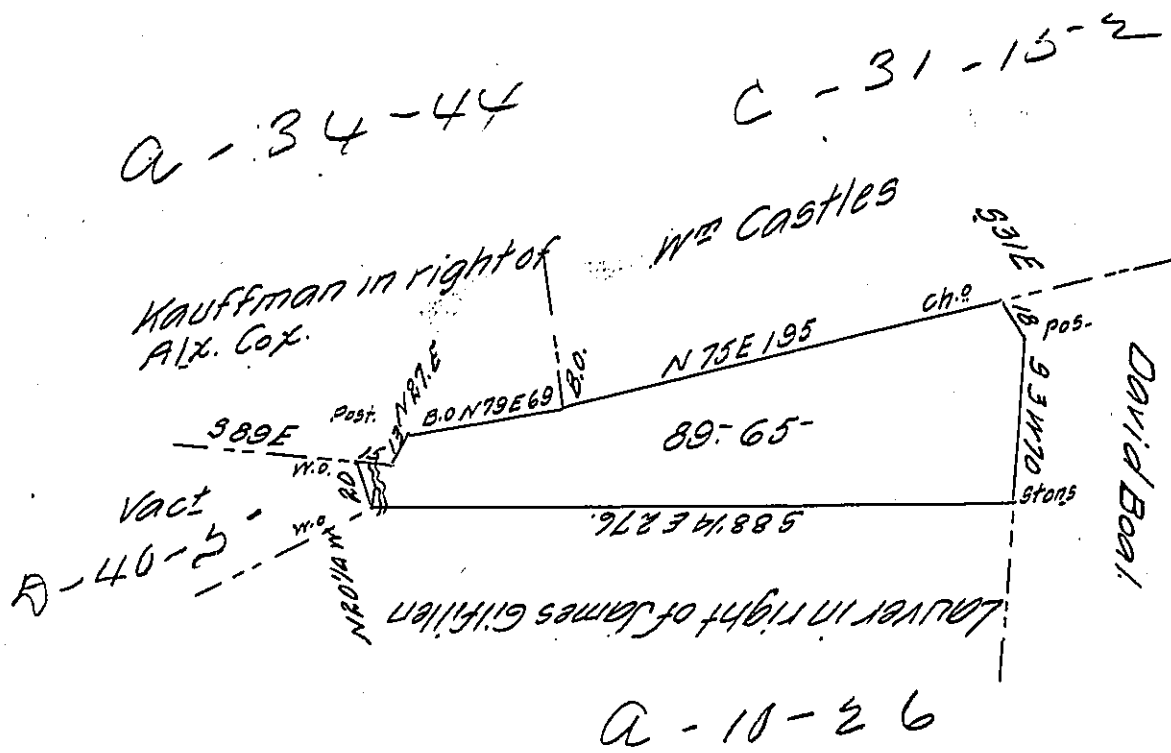 a - 34 - 44
C - 31 - 15 - 2
Kauffman in right of
Alx. Cox.
Wm Castles
S31E
18
Pos-
Ch.o
N 75E 195
B.O.
B.O N79E69
N27.E
13
Post.
15
S89E
W.O.
20
89-65-
S 3 W70
David Boal.
Stons
Vact
W.O
D-40-5
N20¼W
S88¼E 276.
Lauver in right of James Gilfillen
a - 10 - 26